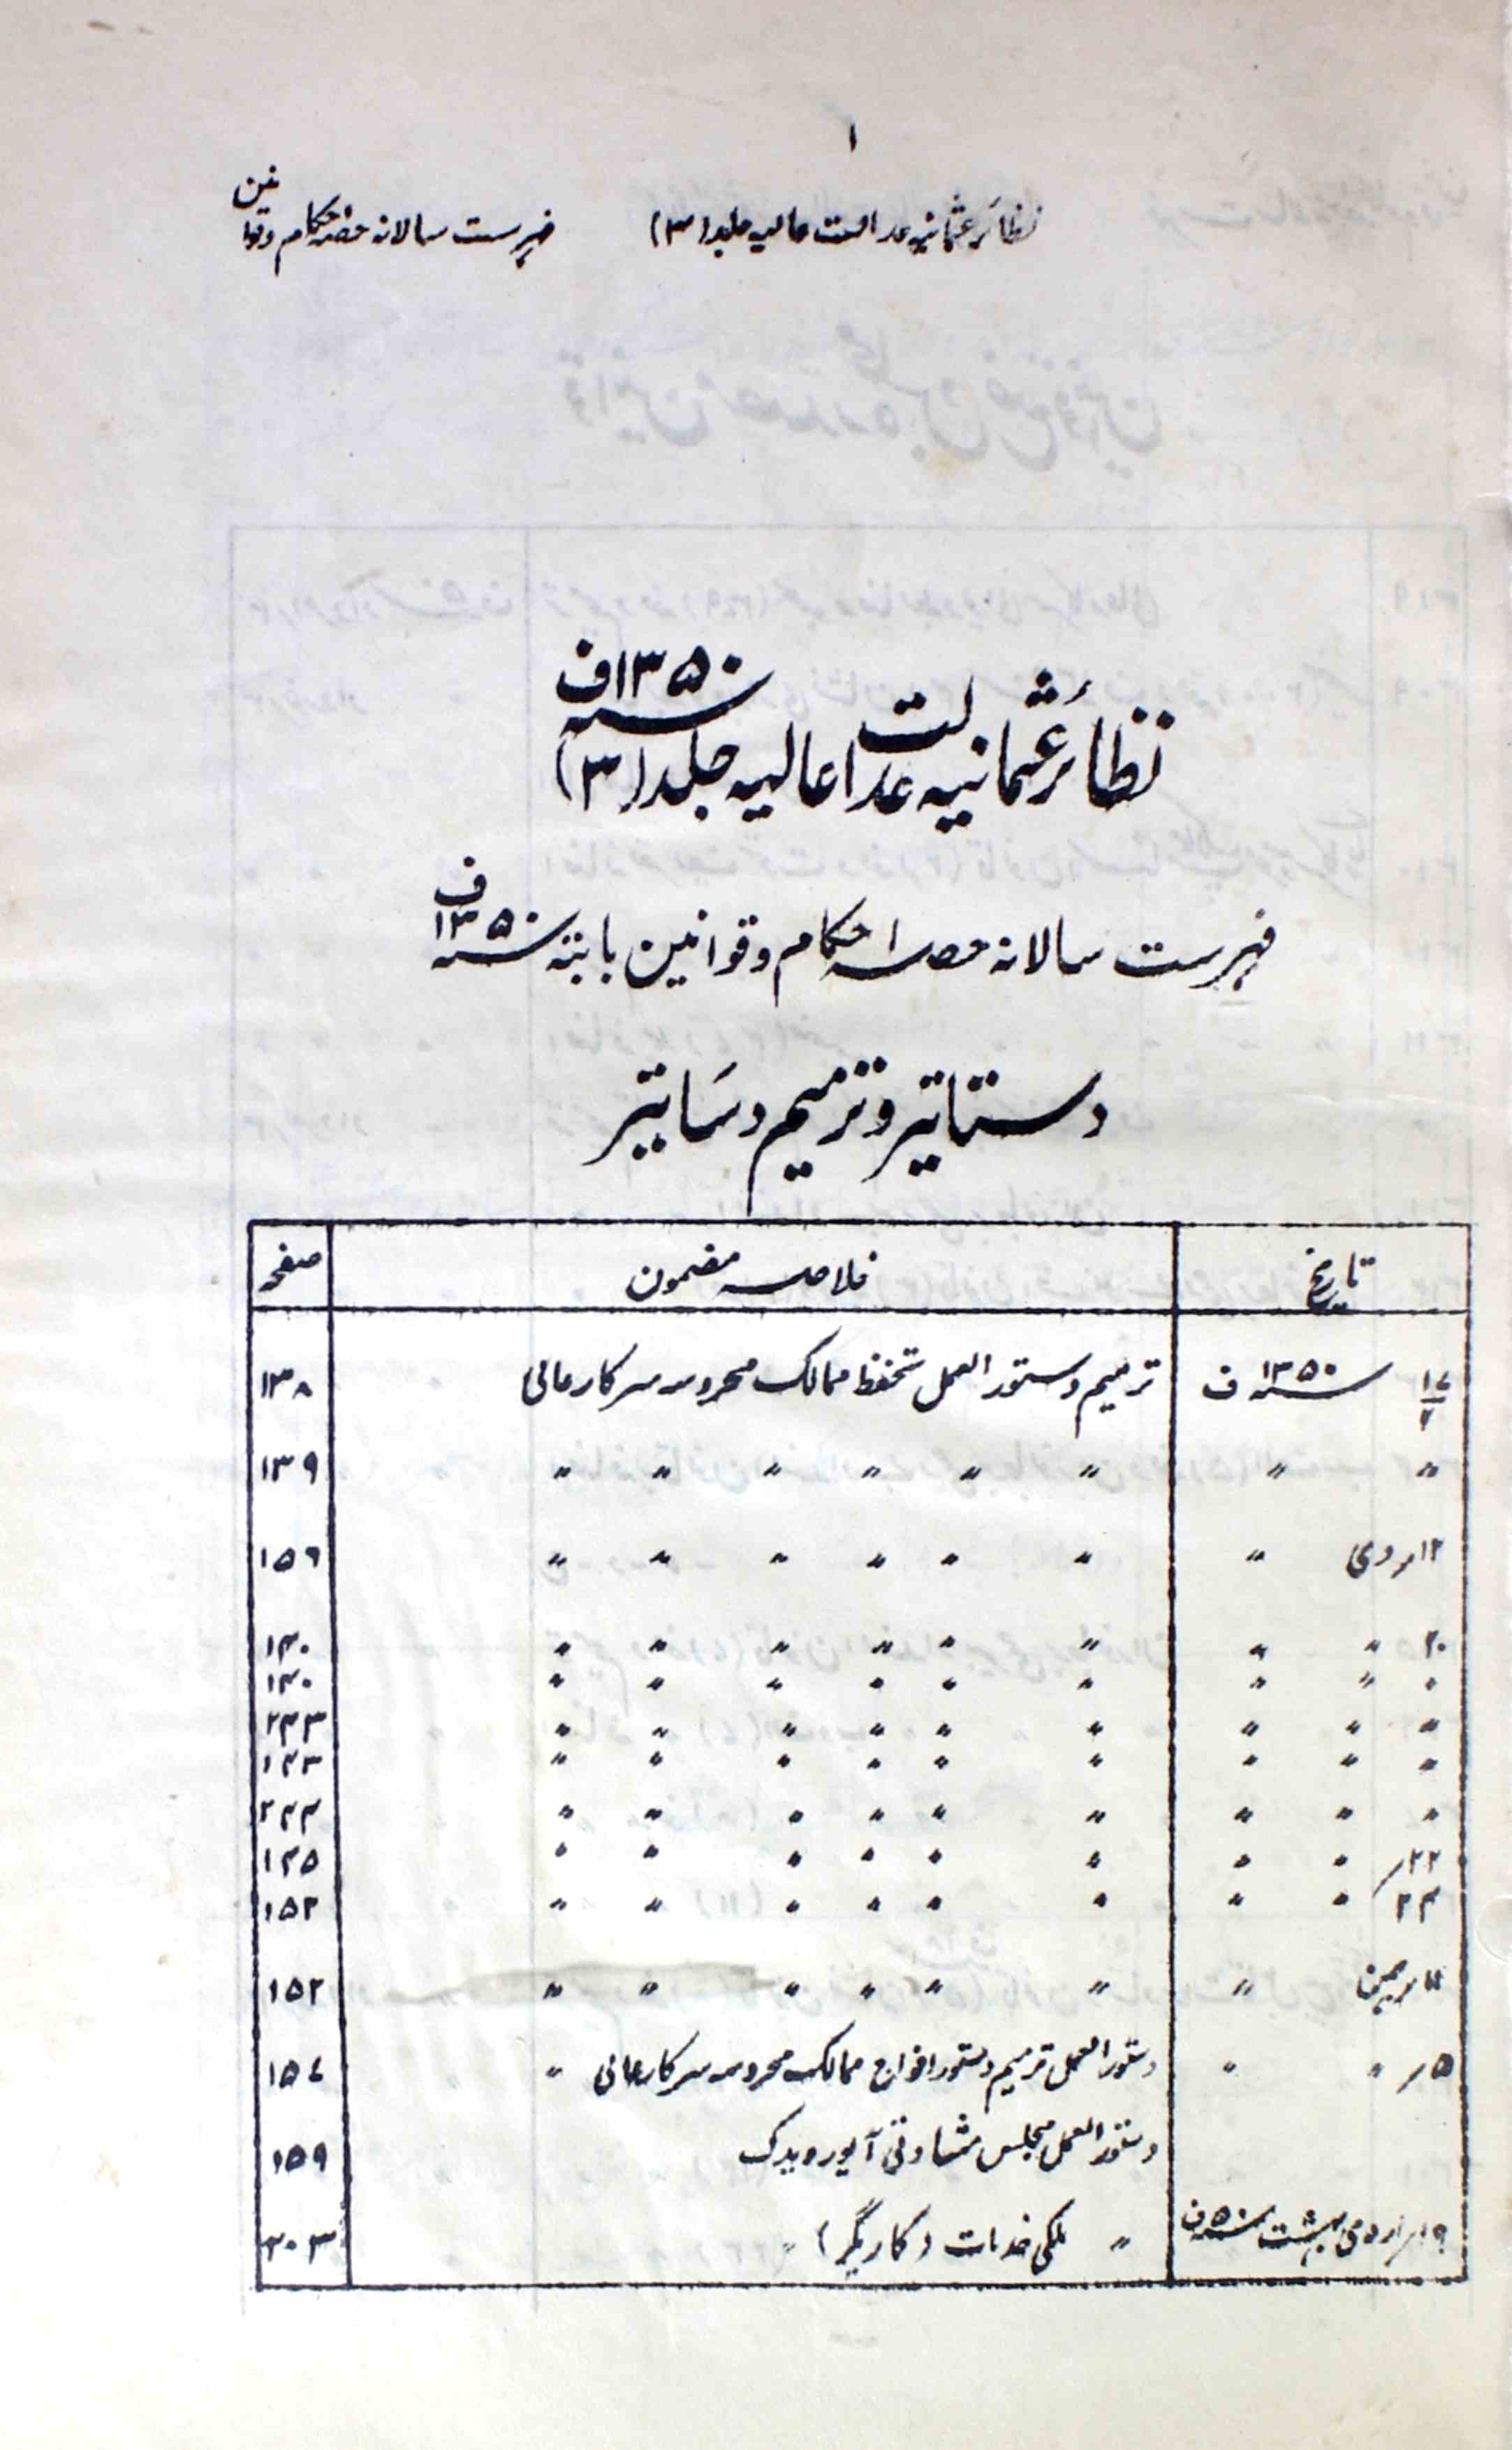 ۱
نظائر عثمانیہ عدالت عالیہ جلد (۳) فہرست سالانہ حصہ احکام و قوانین
نظائر عثمانیہ عدالت عالیہ جلد (۳) سنہ ۱۳۵۰ف
فہرست سالانہ حصہ احکام و قوانین بابتہ سنہ ۱۳۵۰ف
دساتیر و ترمیم دساتیر
تاریخ خلاصہ مضمون صفحہ
سنہ ۱۳۵۰ ف ترمیم دستور العمل تحفظ ممالک محروسہ سرکار عالی ۱۳۸
〃 〃 〃 〃 〃 〃 〃 〃 ۱۳۹
۱۲؍ دی 〃 〃 〃 〃 〃 〃 〃 ۱۵۹
۲۰ 〃 〃 〃 〃 〃 〃 〃 〃 ۱۴۰
〃 〃 〃 〃 〃 〃 〃 〃 〃 ۱۴۰
〃 〃 〃 〃 〃 〃 〃 〃 〃 ۲۴۳
〃 〃 〃 〃 〃 〃 〃 〃 〃 ۱۴۳
〃 〃 〃 〃 〃 〃 〃 〃 〃 ۲۴۴
۲۲؍ 〃 〃 〃 〃 〃 〃 〃 〃 ۱۴۵
۲۴؍ 〃 〃 〃 〃 〃 〃 〃 〃 ۱۵۲
بہمن 〃 〃 〃 〃 〃 〃 〃 ۱۵۲
۱۵؍ 〃 〃 دستور العمل ترمیم دستور افواج ممالک محروسہ سرکار عالی 〃 ۱۵۷
دستور العمل مجلس مشاورتی آیورویدک ۱۵۹
۱۹؍ اردی بہشت سنہ ۵۰ف 〃 ملکی خدمات (کاریگر) 〃 ۳۰۳